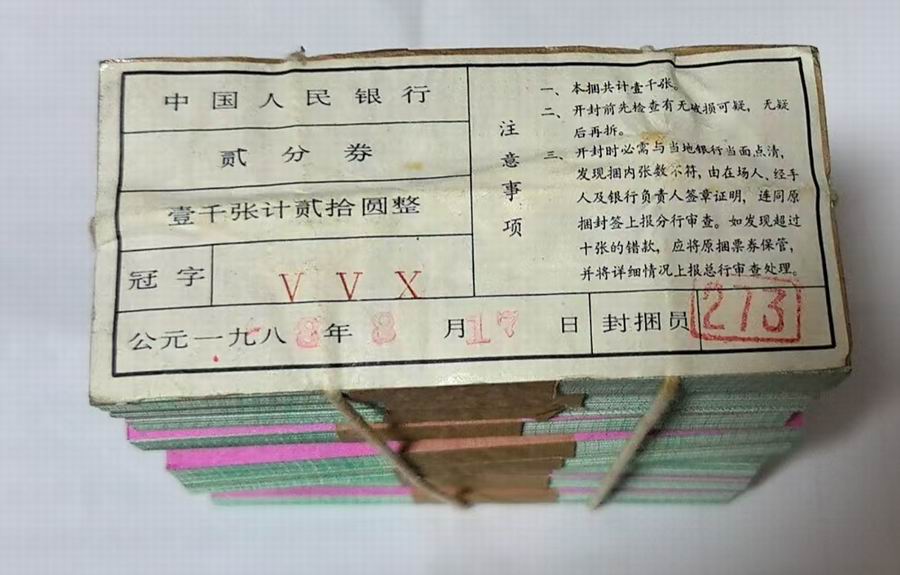 中国人民银行
贰分券
壹千张计贰拾圆整
冠字 VVX
公元一九八8年8月17日 封捆员 273
注意事项
一、本捆共计壹千张。
二、开封前先检查有无破损可疑，无疑
后再拆。
三、开封时必需与当地银行当面点清，
发现捆内张数不符，由在场人、经手
人及银行负责人签章证明，连同原
捆封签上报分行审查。如发现超过
十张的错款，应将原捆票券保管，
并将详细情况上报总行审查处理。